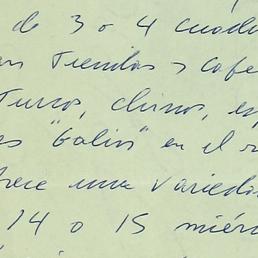 de 3 o 4 cuad
Tiendas y Cafe
Turcos, chinos, es
es "Galios" en el r
rece una variedad
14 o 15 miérc